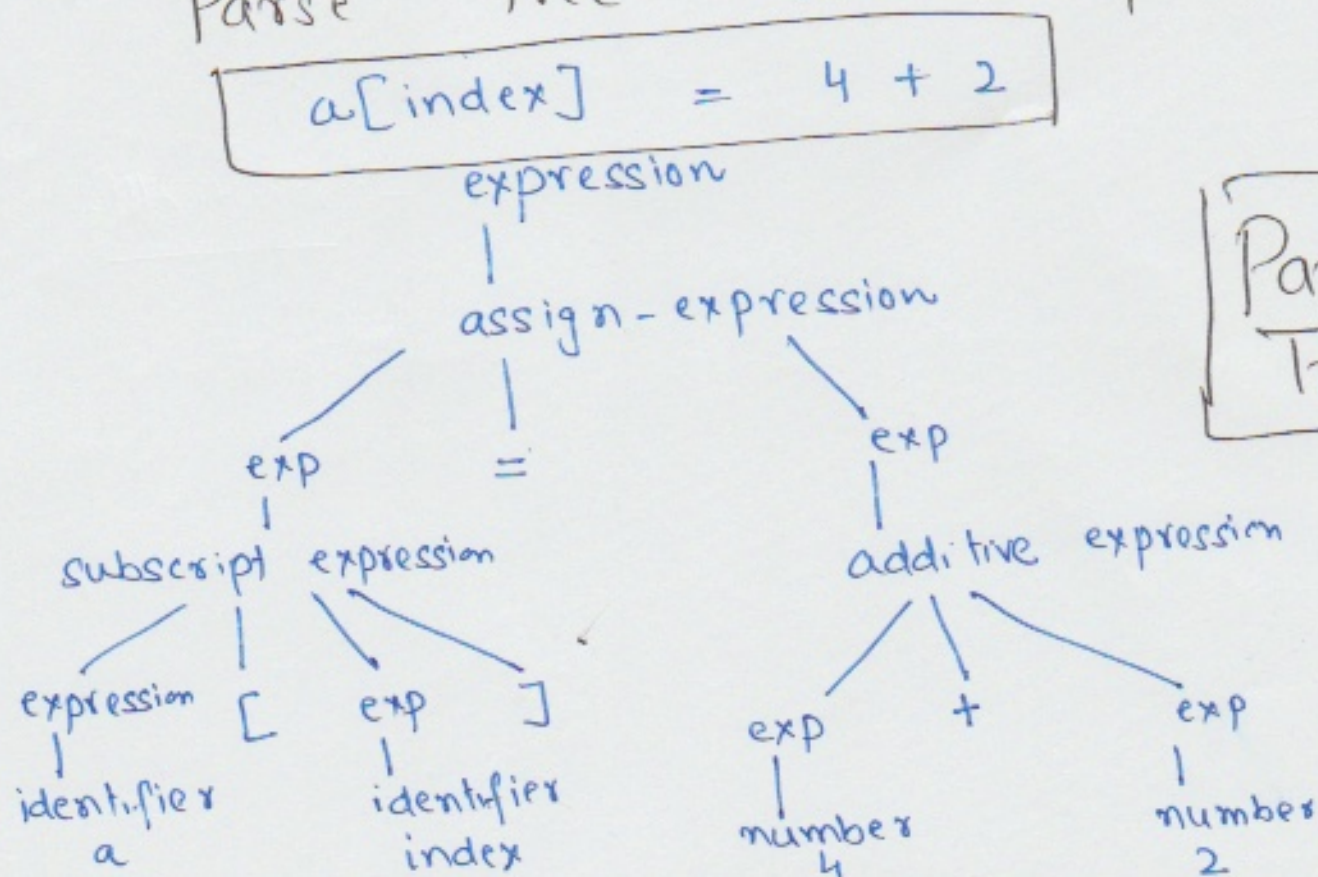 Parse
a[index] = 4 + 2
expression
assign-expression
exp = exp
subscript expression additive expression
expression [ exp ] exp + exp
identifier identifier number number
a index 4 2